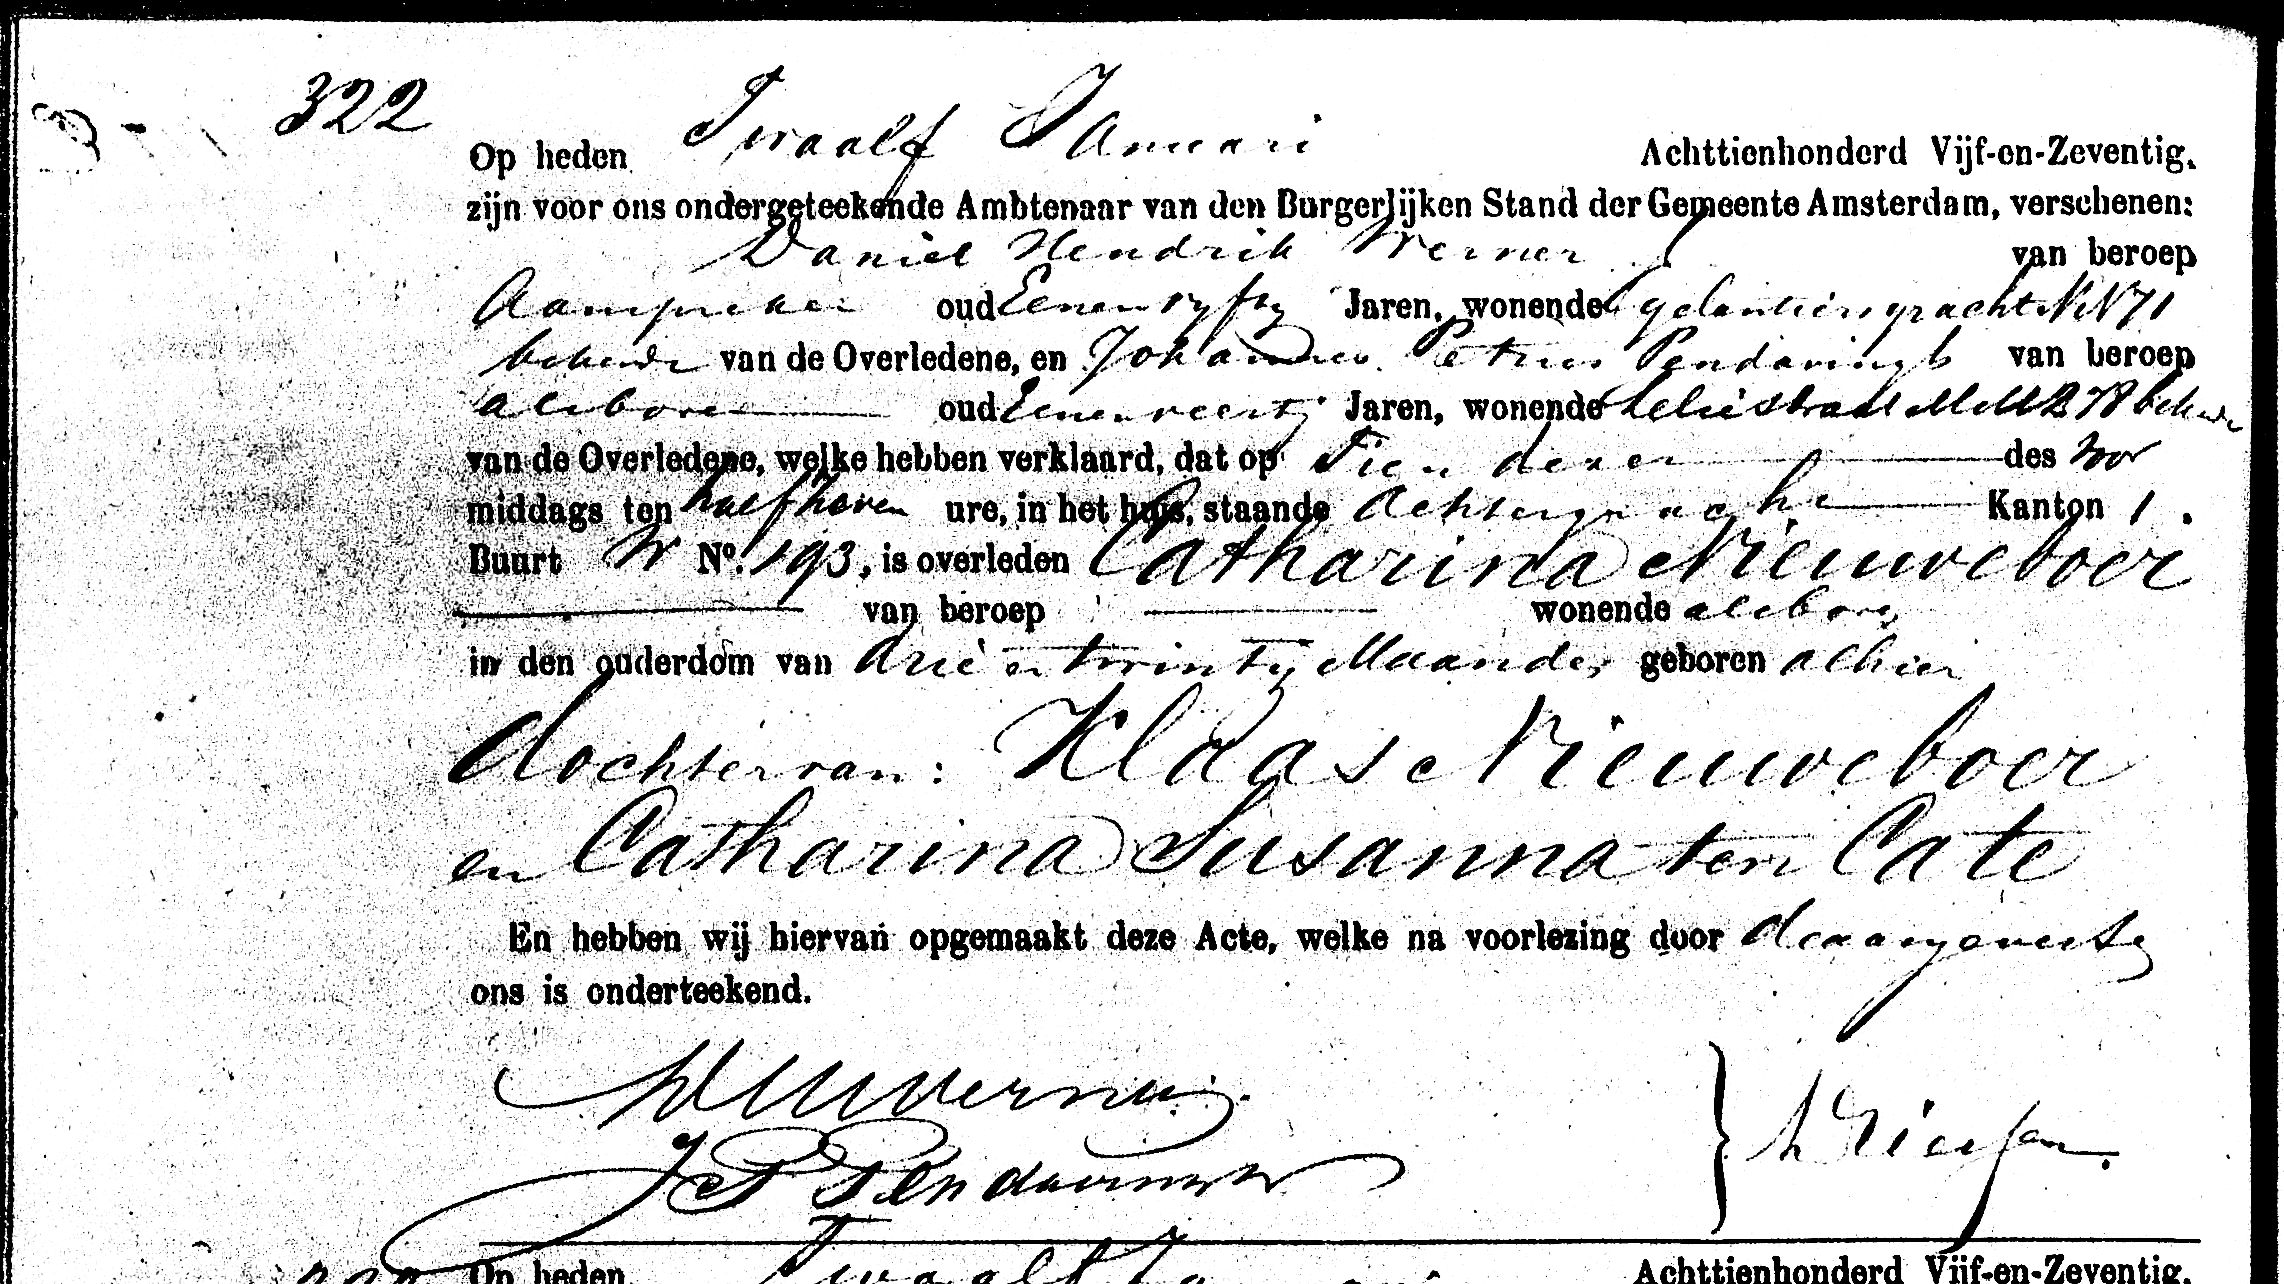 322
Op heden Twaalf Januari Achttienhonderd Vijf-en-Zeventig.
zijn voor ons ondergeteekende Ambtenaar van den Burgerlijken Stand der Gemeente Amsterdam, verschenen:
Daniel Hendrik Werner van beroep
Aanspreker oud Eenenvyftig Jaren, wonende Egelantiersgracht NN 71
bekende van de Overledene, en Johannes Petrus Pendaringh van beroep
alsboven oud Eenenveertig Jaren, wonende Leliestraat MM 278 bekende
van de Overledene, welke hebben verklaard, dat op Tien dezer des voor
middags ten half zeven ure, in het huis, staande Achtergracht Kanton 1.
Buurt W No. 193, is overleden Catharina Nieuweboer
van beroep wonende alsboven
in den ouderdom van drie en twintig Maanden geboren alhier
dochter van: Klaas Nieuweboer
en Catharina Susanna ten Cate
En hebben wij hiervan opgemaakt deze Acte, welke na voorlezing door de aangevers en
ons is onderteekend.
Op heden Twaalf Januari Achttienhonderd Vijf-en-Zeventig.